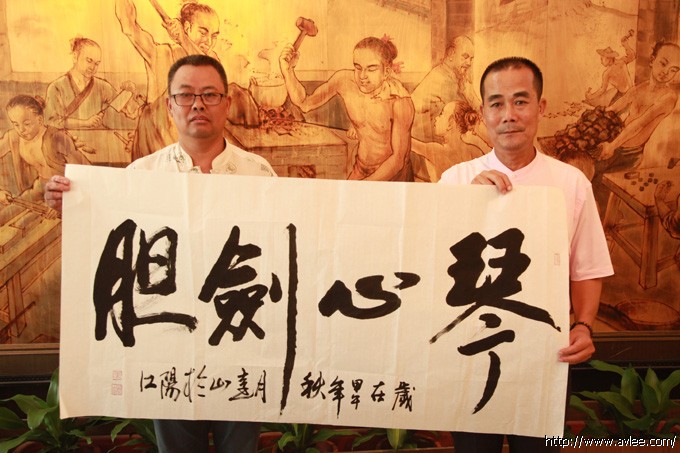 琴心劍胆
歲在年秋月山於陽江
http://www.avlee.com/